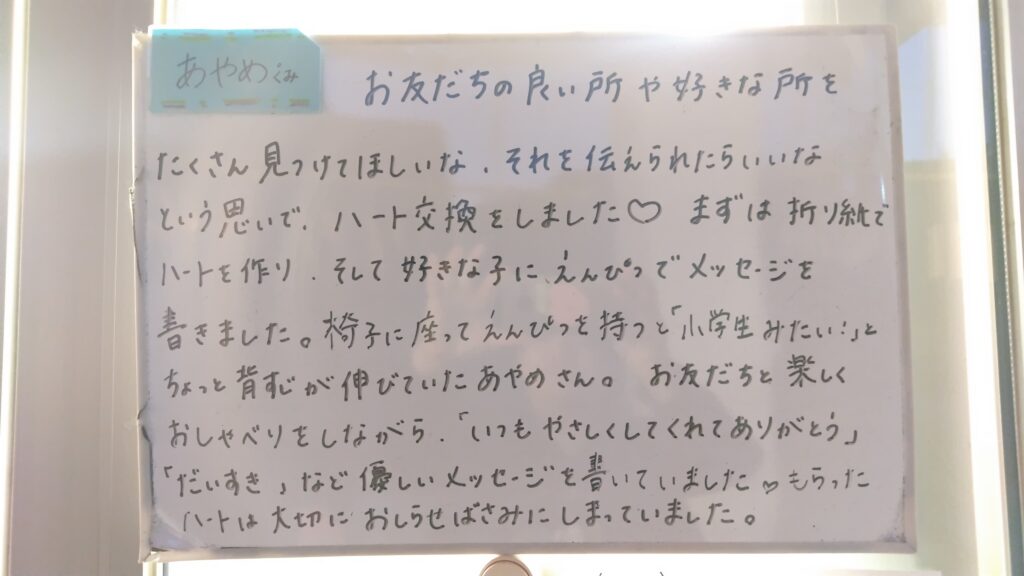 あやめぐみ
お友だちの良い所や好きな所を
たくさん見つけてほしいな、それを伝えられたらいいな
という思いで、ハート交換をしました♡ まずは折り紙で
ハートを作り、そして好きな子に、えんぴつでメッセージを
書きました。椅子に座ってえんぴつを持つと「小学生みたい!」と
ちょっと背すじが伸びていたあやめさん。 お友だちと楽しく
おしゃべりをしながら、「いつもやさしくしてくれてありがとう」
「だいすき」など優しいメッセージを書いていました♡もらった
ハートは大切におしらせばさみにしまっていました。